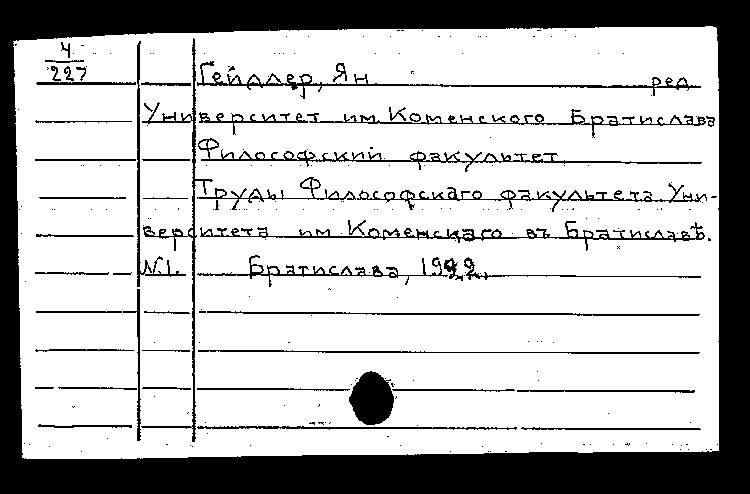 4
227
Гейдлер, Ян ред
Университет им. Коменского Братислава
Философский факультет.
Труды Философскаго факультета Уни-
верситета им Коменскаго въ Братиславѣ.
N.1. Братислава, 1922.